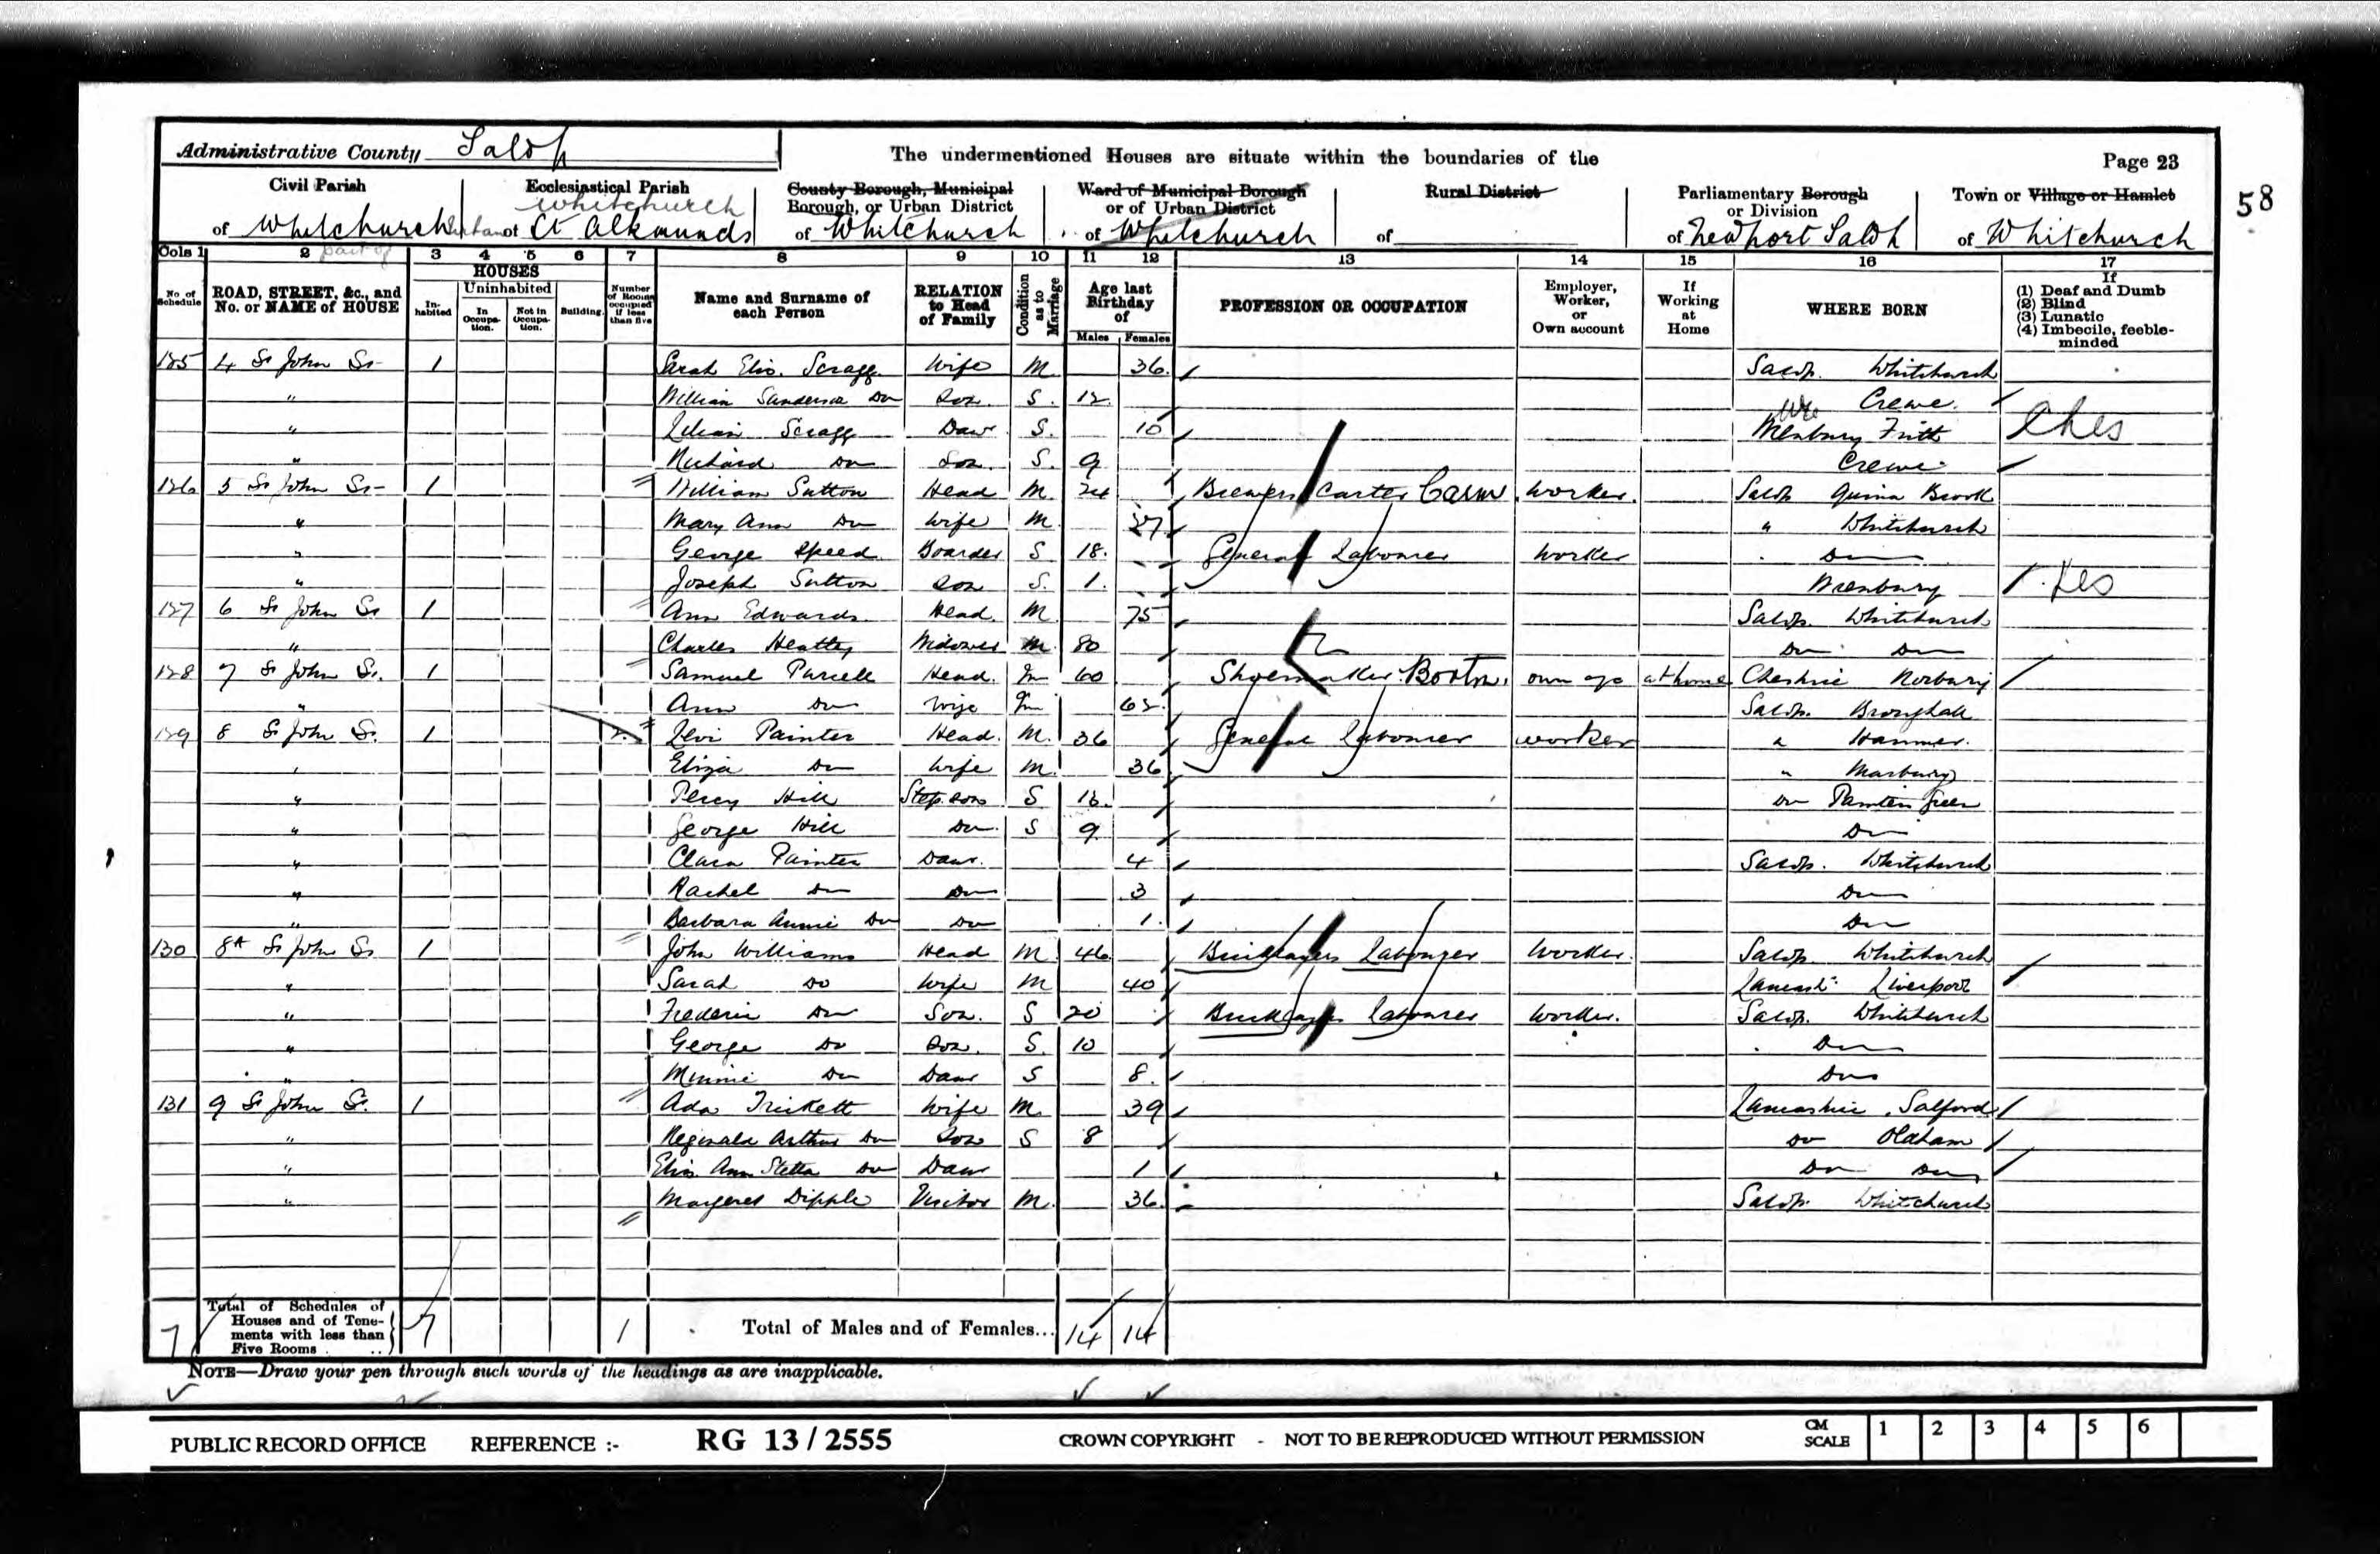 Administrative County Salop
The undermentioned Houses are situate within the boundaries of the
Page 23
58
Civil Parish
of Whitchurch
Ecclesiastical Parish
Whitchurch
of St Alkmunds
County Borough, Municipal
Borough, or Urban District
of Whitchurch
Ward of Municipal Borough
or of Urban District
of Whitchurch
Rural District
of
Parliamentary Borough
or Division
of Newport Salop
Town or Village or Hamlet
of Whitchurch
Cols 1 2 part of 3 4 5 6 7 8 9 10 11 12 13 14 15 16 17
No of Schedule
ROAD, STREET, &c., and No. or NAME of HOUSE
HOUSES
In-habited
Uninhabited
In Occupa-tion.
Not in Occupa-tion.
Building.
Number of Rooms occupied if less than five
Name and Surname of each Person
RELATION to Head of Family
Condition as to Marriage
Age last Birthday of
Males Females
PROFESSION OR OCCUPATION
Employer, Worker, or Own account
If Working at Home
WHERE BORN
If
(1) Deaf and Dumb
(2) Blind
(3) Lunatic
(4) Imbecile, feeble-minded
125 4 St John St 1 Sarah Eliz. Scragg Wife M 36 Salop. Whitchurch
" William Sanderson Do Son. S. 12 Crewe.
" Lilian Scragg Daur S. 10 Wrenbury Frith Ches
" Richard Do Son. S. 9 Crewe
126 5 St John St 1 William Sutton Head M. 24 Brewers Carter Carm Worker. Salop Quina Brook
" Mary Ann Do Wife M 27 " Whitchurch
" George Speed Boarder S 18. General Labourer Worker Do
" Joseph Sutton Son S. 1. Wrenbury
127 6 St John St 1 Ann Edwards Head. M 75 Salop. Whitchurch
" Charles Heatley Widower M 80 Do Do
128 7 St John St. 1 Samuel Purcell Head. M 60 Shoemaker Bootm. own a/c at home Cheshire Norbury
" Ann Do Wife M Salop. Broughall
129 8 St John St. 1 2. Levi Painter Head. M. 36 General Labourer worker " Hanmer.
" Eliza Do Wife M. 36 " Marbury
" Percy Hill Step son S Do Painters Green
" George Hill Do. S 9 Do
" Clara Painter Daur. 4 Salop. Whitchurch
" Rachel Do Do 3 Do
" Barbara Annie Do Do 1. Do
130 8A St John St 1 John Williams Head M 46 Bricklayers Labourer Worker. Salop. Whitchurch
" Sarah Do Wife M 40 Lancash: Liverpool
" Frederic Do Son. S 20 Bricklayers Labourer Worker. Salop. Whitchurch
" George Do Son. S. 10 Do
" Minnie Do Daur S 8. Do
131 9 St John St. 1 Ada Trickett Wife M. 39 Lancashire Salford
" Reginald Arthur Do Son S 8 Do Oldham
" Eliz. Ann Do Daur 1 Do Do
" Margeret Dipple Visitor M. 36. Salop. Whitchurch
7 Total of Schedules of Houses and of Tene-ments with less than Five Rooms .. 7 1 Total of Males and of Females... 14 14
NOTE—Draw your pen through such words of the headings as are inapplicable.
PUBLIC RECORD OFFICE REFERENCE :- RG 13/2555 CROWN COPYRIGHT - NOT TO BE REPRODUCED WITHOUT PERMISSION CM SCALE 1 2 3 4 5 6